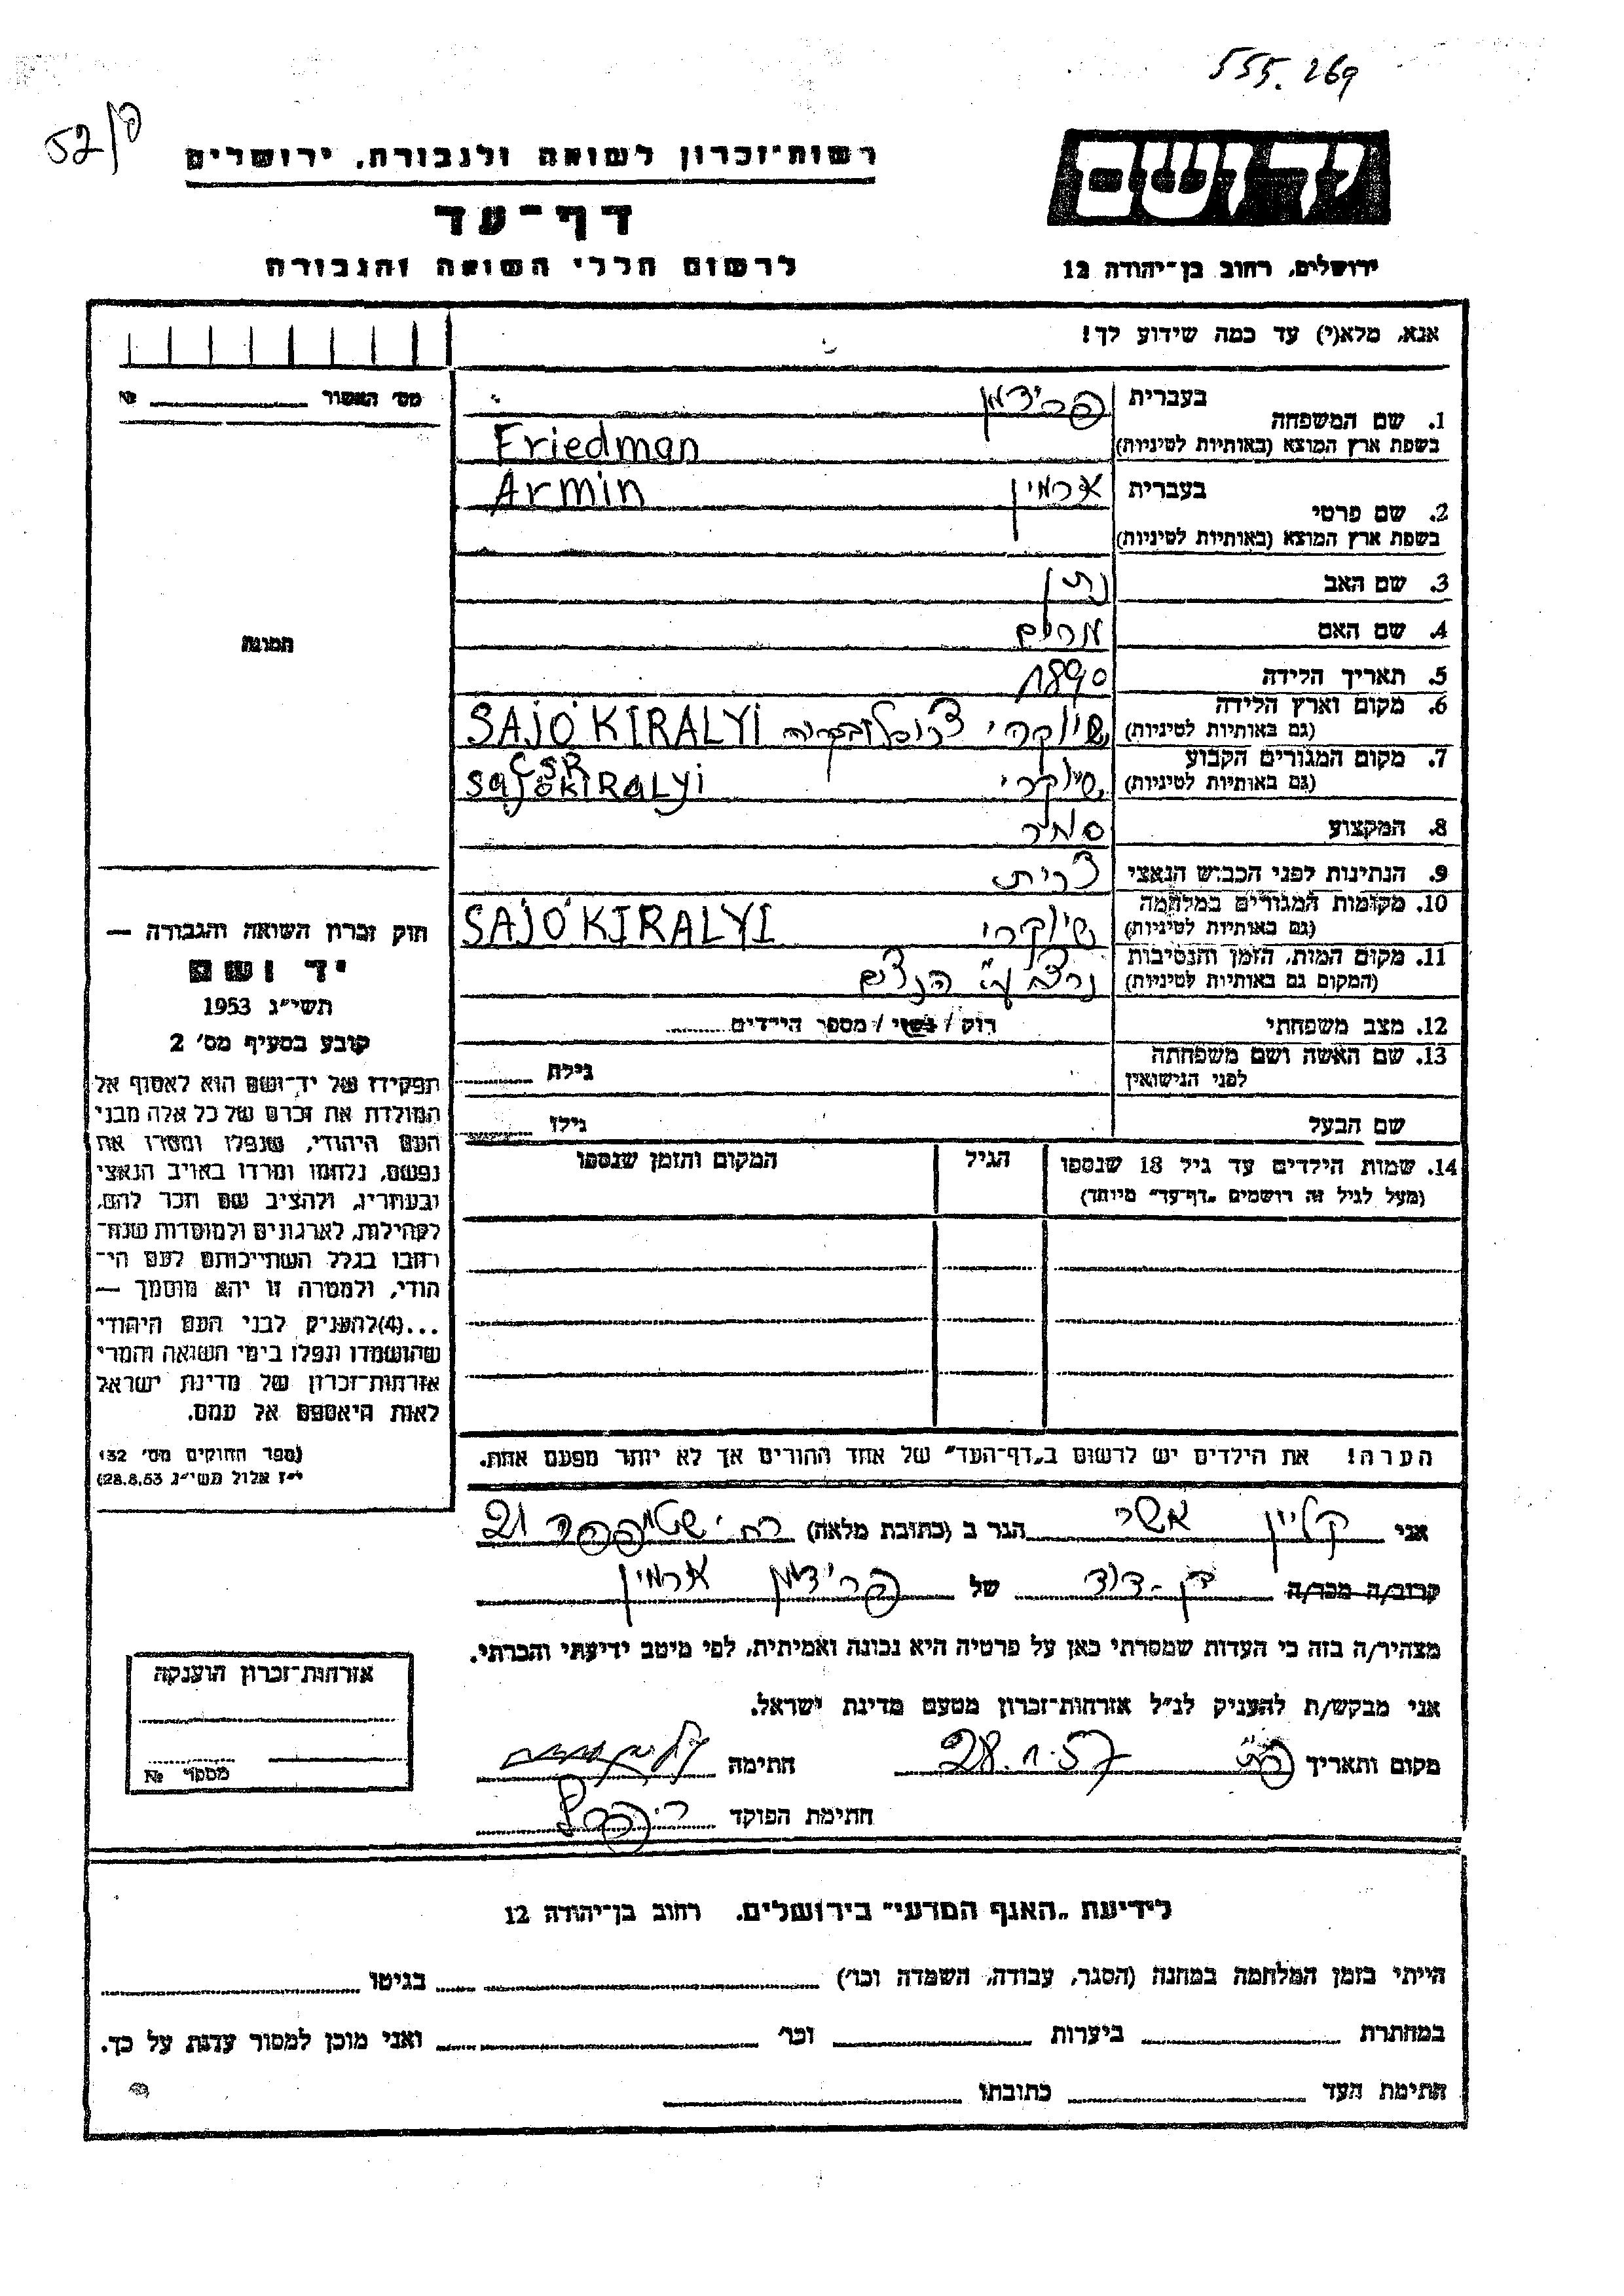 555.269
52/פ
רשות־זכרון לשואה ולגבורה, ירושלים
דף־עד
לרשום חללי השואה והגבורה
יד ושם
ירושלים, רחוב בן־יהודה 12
אנא, מלא(י) עד כמה שידוע לך!
מס׳ האשור № 
1. שם המשפחה בעברית פרידמן
בשפת ארץ המוצא (באותיות לטיניות) Friedman
2. שם פרטי בעברית ארמין Armin
בשפת ארץ המוצא (באותיות לטיניות)
3. שם האב נתן
4. שם האם מרים
5. תאריך הלידה 1890
6. מקום וארץ הלידה
(גם באותיות לטיניות) SAJÓKIRALYI
7. מקום המגורים הקבוע CSR
(גם באותיות לטיניות) SajóKIRalyi
8. המקצוע סוחר
9. הנתינות לפני הכבוש הנאצי צ׳כית
10. מקומות המגורים במלחמה
(גם באותיות לטיניות) SAJÓKIRALYI
11. מקום המות, הזמן והנסיבות
(המקום גם באותיות לטיניות) נרצח ע״י הנאצים
12. מצב משפחתי רוק / נשוי / מספר הילדים
13. שם האשה ושם משפחתה
לפני הנישואין גילה
שם הבעל גילו
14. שמות הילדים עד גיל 18 שנספו הגיל המקום והזמן שנספו
(מעל לגיל זה רושמים „דף־עד״ מיוחד)
הערה! את הילדים יש לרשום ב„דף־העד״ של אחד ההורים אך לא יותר מפעם אחת.
תמונה
חוק זכרון השואה והגבורה —
יד ושם
תשי״ג 1953
קובע בסעיף מס׳ 2
תפקידו של יד־ושם הוא לאסוף אל
המולדת את זכרם של כל אלה מבני
העם היהודי, שנפלו ומסרו את
נפשם, נלחמו ומרדו באויב הנאצי
ובעוזריו, ולהציב שם וזכר להם,
לקהילות, לארגונים ולמוסדות שנח־
רבו בגלל השתייכותם לעם הי־
הודי, ולמטרה זו יהא מוסמך —
...(4)להעניק לבני העם היהודי
שהושמדו ונפלו בימי השואה והמרי
אזרחות־זכרון של מדינת ישראל
לאות היאספם אל עמם.
(ספר החוקים מס׳ 132
י״ז אלול תשי״ג 28.8.53)
אני קליין אשר הגר ב (כתובת מלאה) רח׳ 21
קרוב/ה מכר/ה בן-דוד של פרידמן ארמין
מצהיר/ה בזה כי העדות שמסרתי כאן על פרטיה היא נכונה ואמיתית, לפי מיטב ידיעתי והכרתי.
אני מבקש/ת להעניק לנ״ל אזרחות־זכרון מטעם מדינת ישראל.
מקום ותאריך 28.1.57 חתימה
חתימת הפוקד
אזרחות־זכרון הוענקה
מספר №
לידיעת „האגף המדעי״ בירושלים. רחוב בן־יהודה 12
הייתי בזמן המלחמה במחנה (הסגר, עבודה, השמדה וכו׳) בגיטו
במחתרת ביערות וכו׳ ואני מוכן למסור עדות על כך.
חתימת העד כתובתו